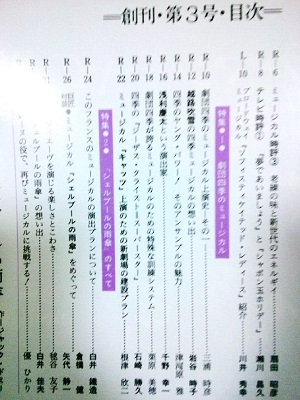 創刊・第3号・目次
R-6 ミュージカル時評③ 老練の味と新世代のエネルギー 扇田 昭彦
R-8 テレビ時評① 「夢であいましょう」と「シャボン玉ホリデー」 瀬川 昌久
L-10 ブロードウェイ・ミュージカル 「ソフィスティケイテッド・レディース」紹介 川井 秀幸
特集●1● 劇団四季のミュージカル
R-10 劇団四季のミュージカル上演史・その一 三浦 時彦
R-12 越路吹雪の四季ミュージカルの想い出 岩谷 時子
R-14 四季のヤング・パワー! そのアンサンブルの魅力 津河原 雅
R-16 浅利慶太という演出家 千野 幸一
R-18 劇団四季が誇るミュージカルのための特殊な訓練システム 栗原 美穂
R-20 四季の「ジーザス・クライスト=スーパースター」 石崎 勝久
R-22 ミュージカル「キャッツ」上演のための新劇場の建設プラン 根津 欣二
特集●2● 「シェルブールの雨傘」のすべて
R-24 このフランスのミュージカルの演出プランについて 白井 鐵造
R-26 ミュージカル「シェルブールの雨傘」をめぐって 倉橋 健
矢代 静一
ーヴを演じる楽しさとこわさ 毬谷 友子
ルブールの雨傘」の想い出 白井 佳夫
ーヌの役で、再びミュージカルに挑戦する! 優 ひかり